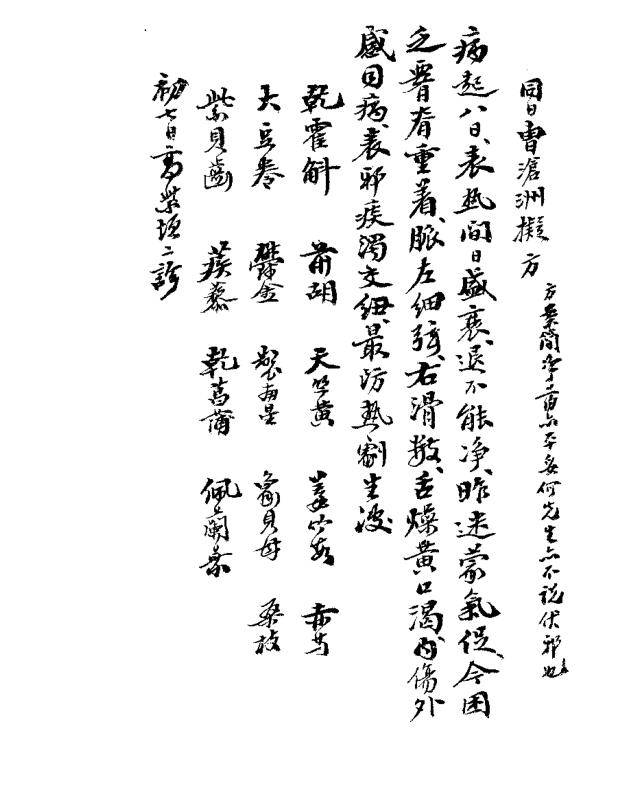 同日曹滄洲擬方
方案簡淨藥亦平妥何先生亦不說伏邪也
病起八日、表熱間日盛衰、退不能淨、昨迷蒙氣促、今困
乏脊脊重着、脈左細弦、右滑數、舌燥黃口渴、內傷外
感同病、表邪痰濁交紐、最防熱劇生波
乾霍斛 前胡 天竺黃 姜竹茹 赤芍
大豆卷 鬱金 製南星 象貝母 桑枝
紫貝齒 蒺藜 乾菖蒲 佩蘭葉
初七日高紫垣二診